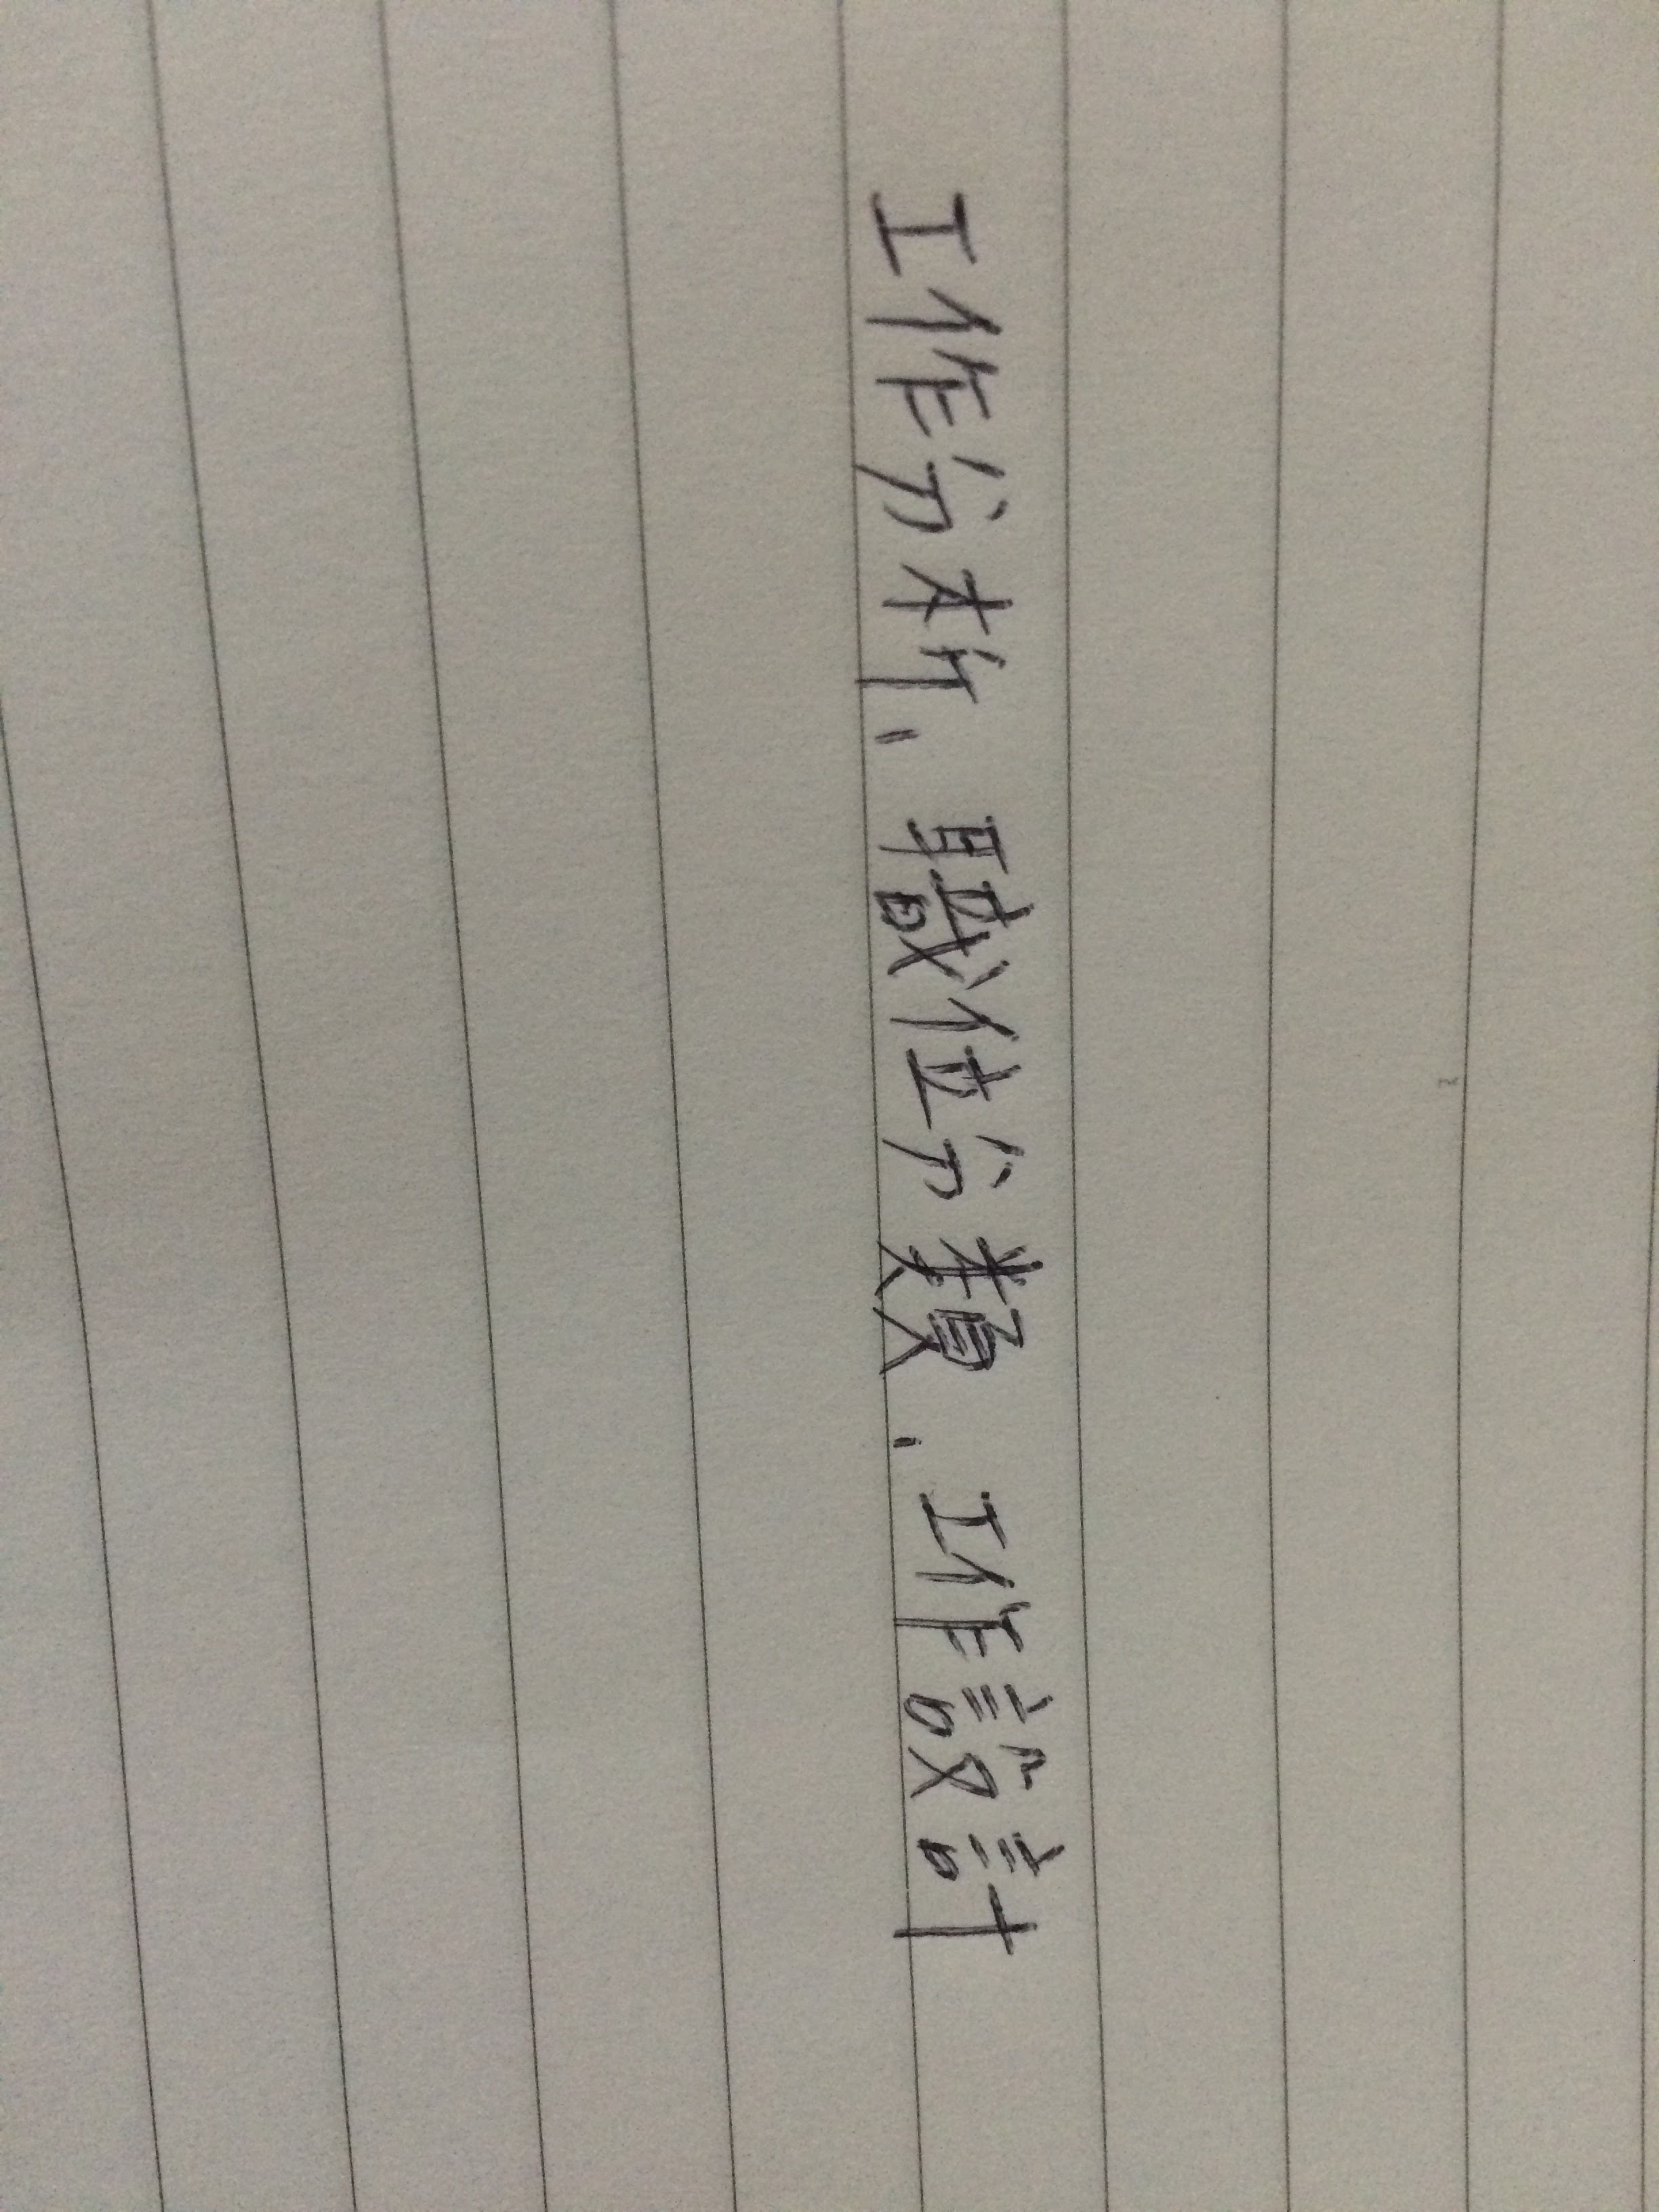 工作分析、職位分類、工作設計